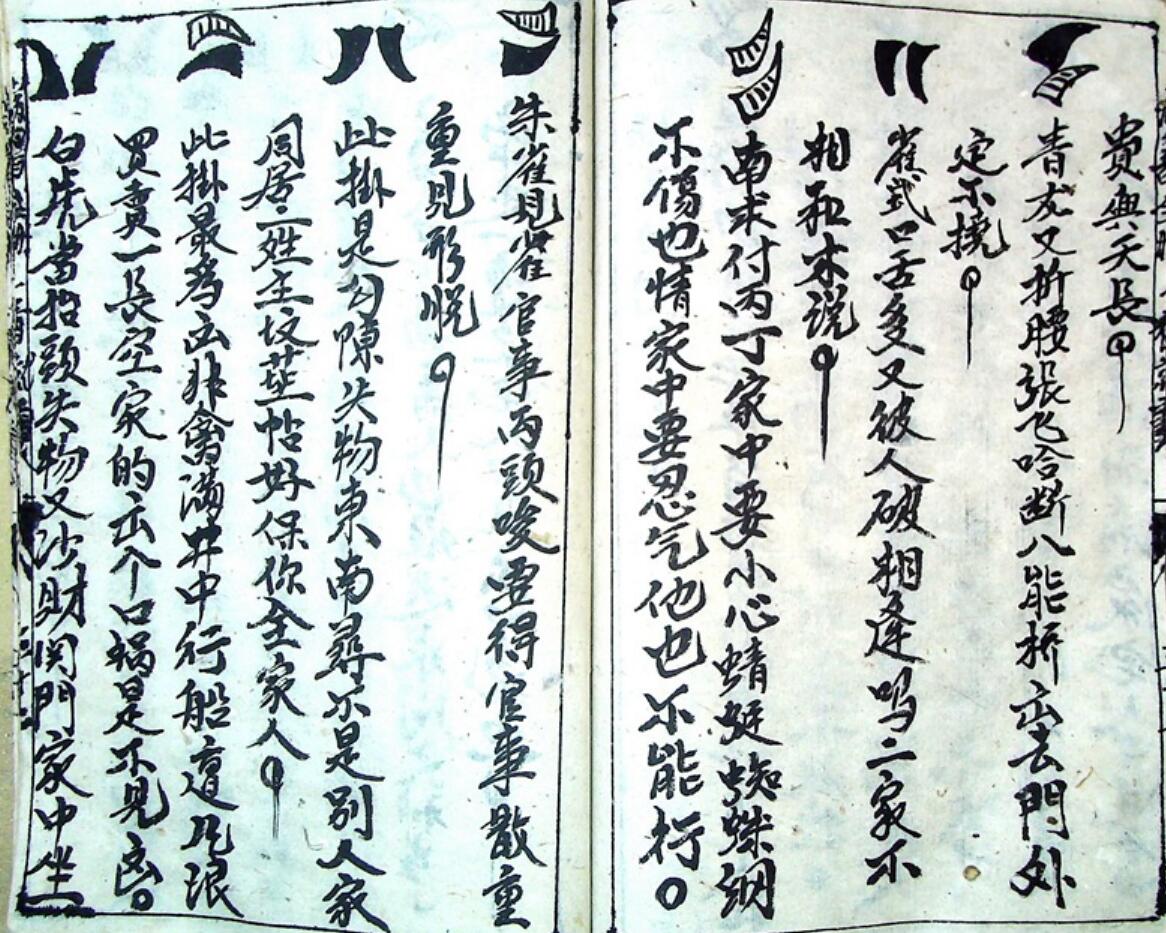 貴與天長
青龙又折腰張飞哈断八能桥出去門外
定不撓
雀式口舌多又彼人破相逢呜二家不
相和木说
南求付丙丁家中要小心蜻蜓蜘蛛網
不傷也情家中要忍气他也不能行
朱雀見雀官事丙頭唆要得官事散重
重見形悦
此掛是勾隙失物東南尋不是别人家
同居二姓主坟茔帖好保你全家人
此掛最為凶非禽滿井中行船遭凡浪
買賣一長空家的出个口禍是不見凶
白虎當抬頭失物又沙財関門家中坐